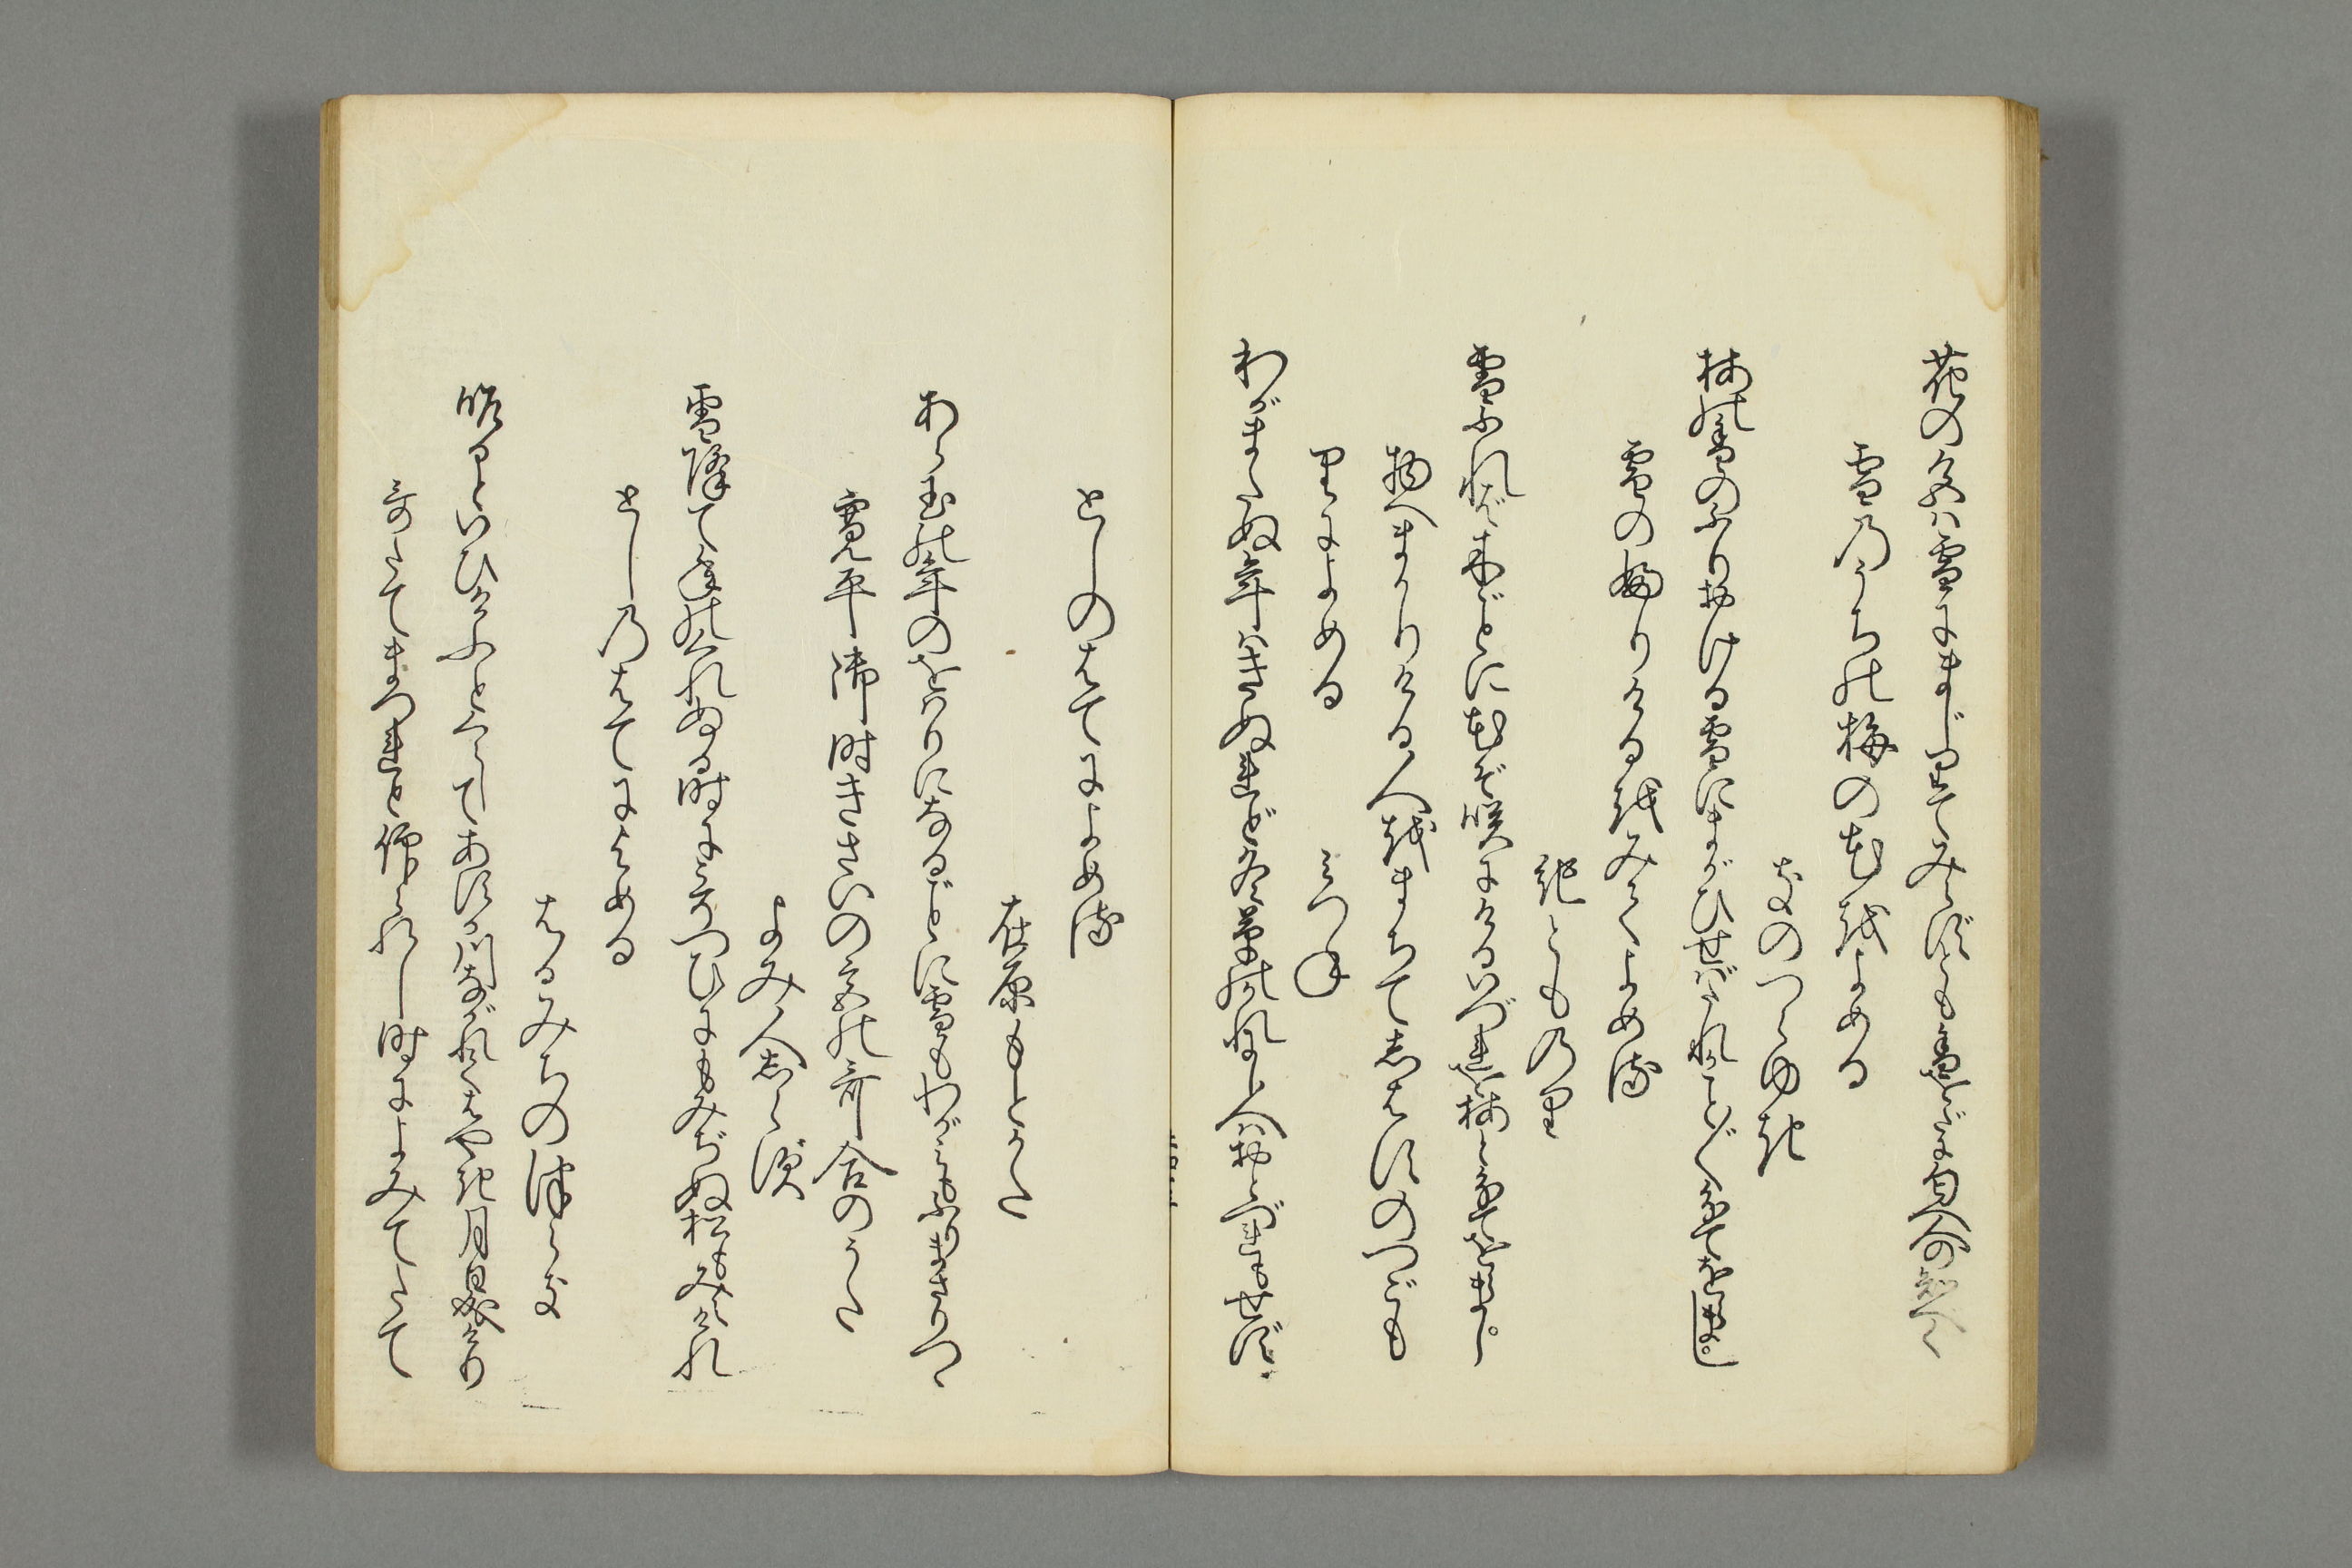 花の色は雪にまじりてみえずともかをだに匂へ人の知べく
雪のうちの梅の花をよめる
きのつらゆき
梅の香のふりおける雪にまがひせばたれかことごとわきてをらまし
雪のふりけるをみてよめる
紀とものり
雪ふれば木ごとに花ぞ咲にけるいづれを梅とわきてをらまし
物へまかりける人をまちてしはすのつごも
りによめる
みつね
わがまたぬ年はきぬれど冬草のかれにし人はおとづれもせず
としのはてによめる
在原もとかた
あら玉の年のをはりになるごとに雪もわがみもふりまさりつゝ
寛平御時きさいの宮の哥合のうた
よみ人しらず
雪降て年のくれぬる時にこそつひにもみぢぬ松もみえけれ
としのはてによめる
はるみちのつらき
昨日といひけふとくらしてあすか川ながれてはやき月日成けり
哥たてまつれと仰られし時によみてたて